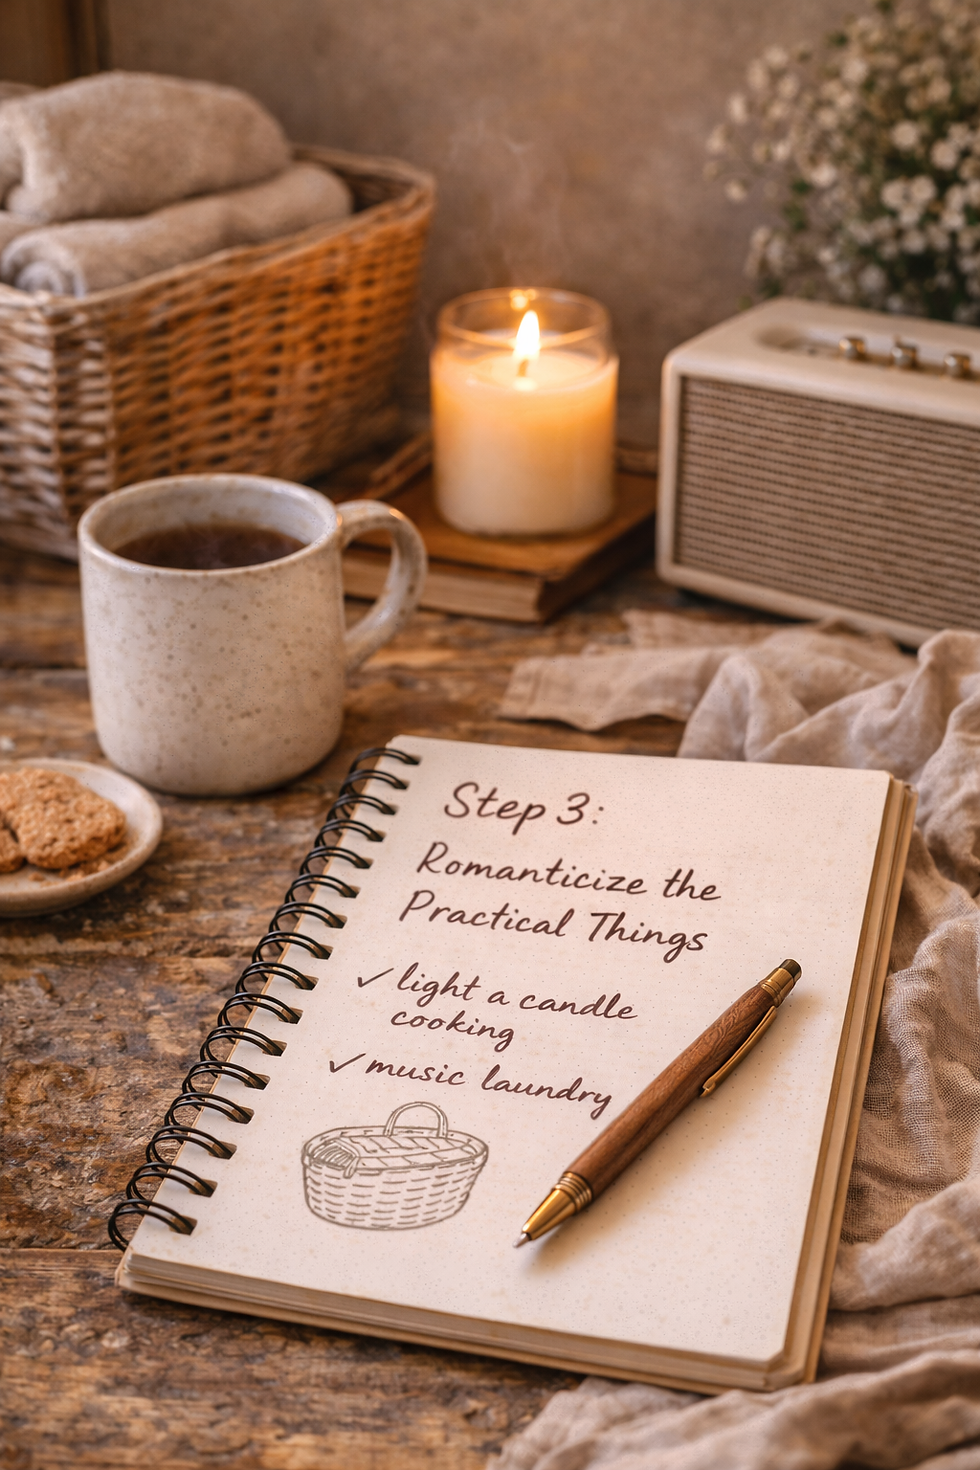 Step 3:
Romanticize the
Practical Things
✓ light a candle
cooking
✓ music laundry